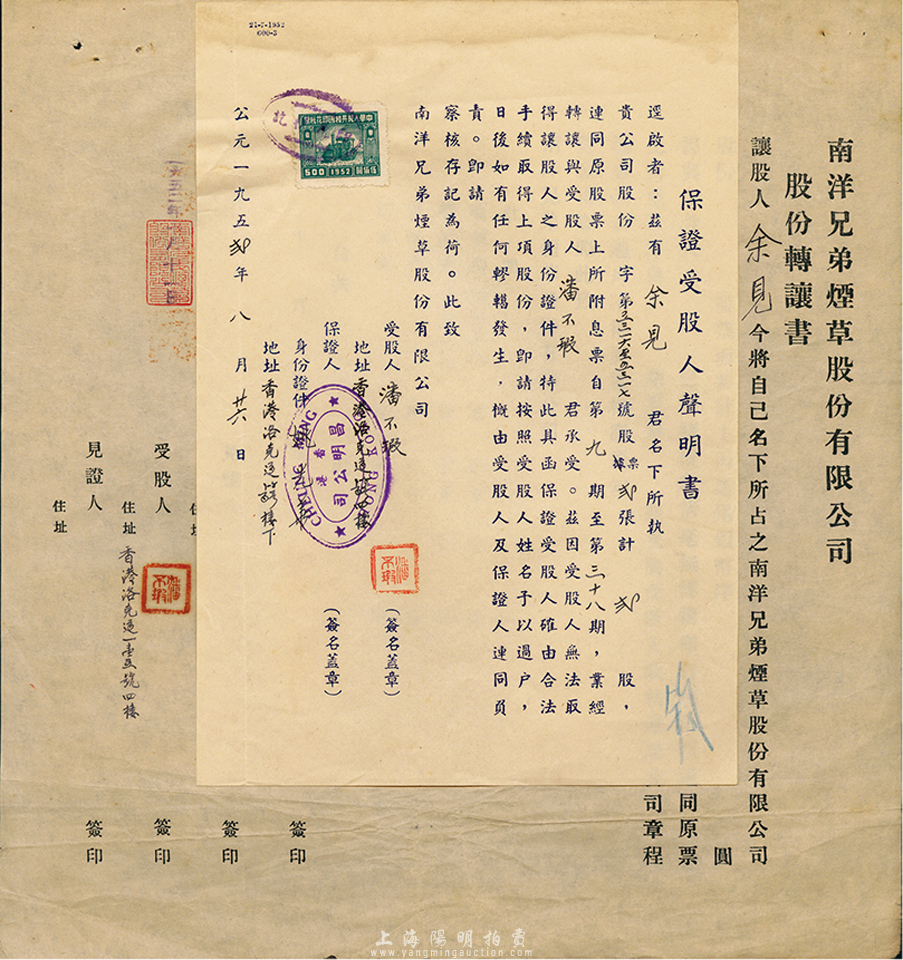 南洋兄弟煙草股份有限公司
股份轉讓書
讓股人 余見 今將自己名下所占之南洋兄弟煙草股份有限公司
圓
同原票
司章程
21-7-1952
600-3
保證受股人聲明書
逕啟者：茲有 余見 君名下所執
貴公司股份 字第 號股票 弍張計 弍 股，
連同原股票上所附息票自第 九 期至第 三十八 期，業經
轉讓與受股人 潘不瑕 君承受。茲因受股人無法取
得讓股人之身份證件，特此具函保證受股人確由合法
手續取得上項股份，卽請按照受股人姓名予以過户，
日後如有任何轇轕發生，概由受股人及保證人連同負
責。卽請
察核存記為荷。此致
南洋兄弟煙草股份有限公司
受股人 潘不瑕 (簽名蓋章)
地址 香港洛克道 四樓
保證人 (簽名蓋章)
身份證件
地址 香港洛克道 樓下
公元一九五弍年 八 月 廿六 日
中華人民共和國印花稅票
500 1952
CHEUNG MING
KOK KUNG
昌明公司
香港
簽印
簽印
受股人 簽印
住址 香港洛克道一壹五號四樓
見證人 簽印
住址
潘不瑕
潘不瑕
上海陽明拍賣
www.yangmingauction.com